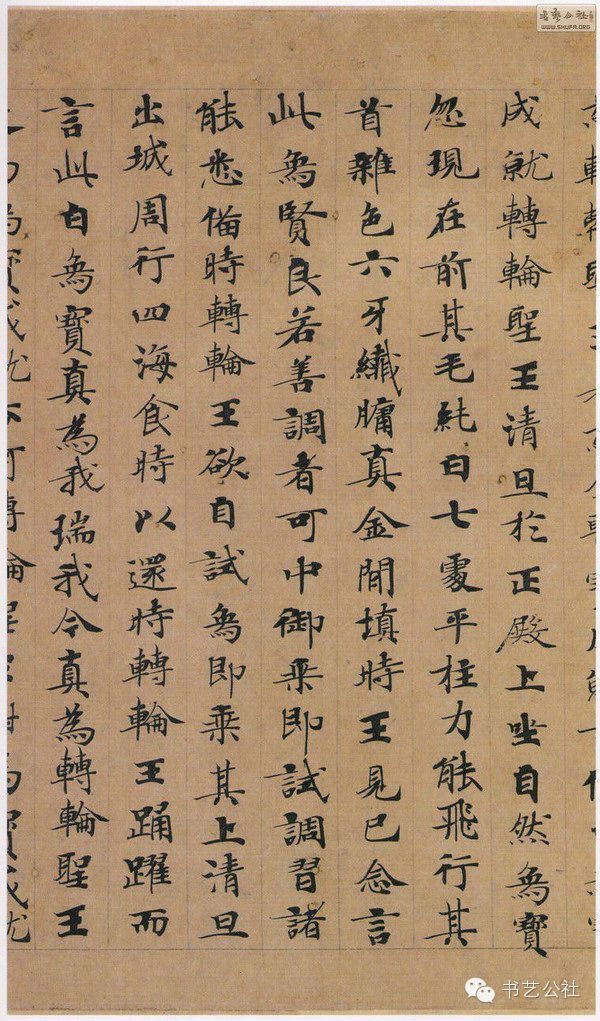 成就轉輪聖王清旦於正殿上坐自然象寶
忽現在前其毛純白七處平柱力能飛行其
首雜色六牙纖𦟛真金間填時王見已念言
此象賢良若善調者可中御乘即試調習諸
能悉俻時轉輪王欲自試象即乘其上清旦
出城周行四海食時以還時轉輪王踊躍而
言此白象寶真為我瑞我今真為轉輪聖王
WWW.SHUFA.ORG
书艺公社